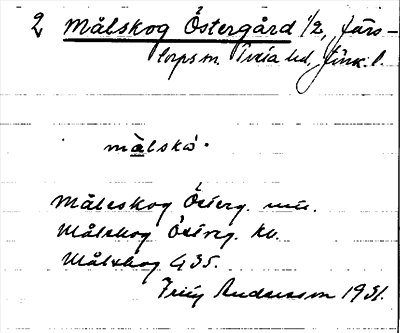 2 Målskog Östergård 1/2, Järs-
torps sn. Tveta hd, Jönk. l.
målskò.
Målskog Österg. mu.
Målskog Österg. kv.
Målskog G 35.
Andersson 1931.